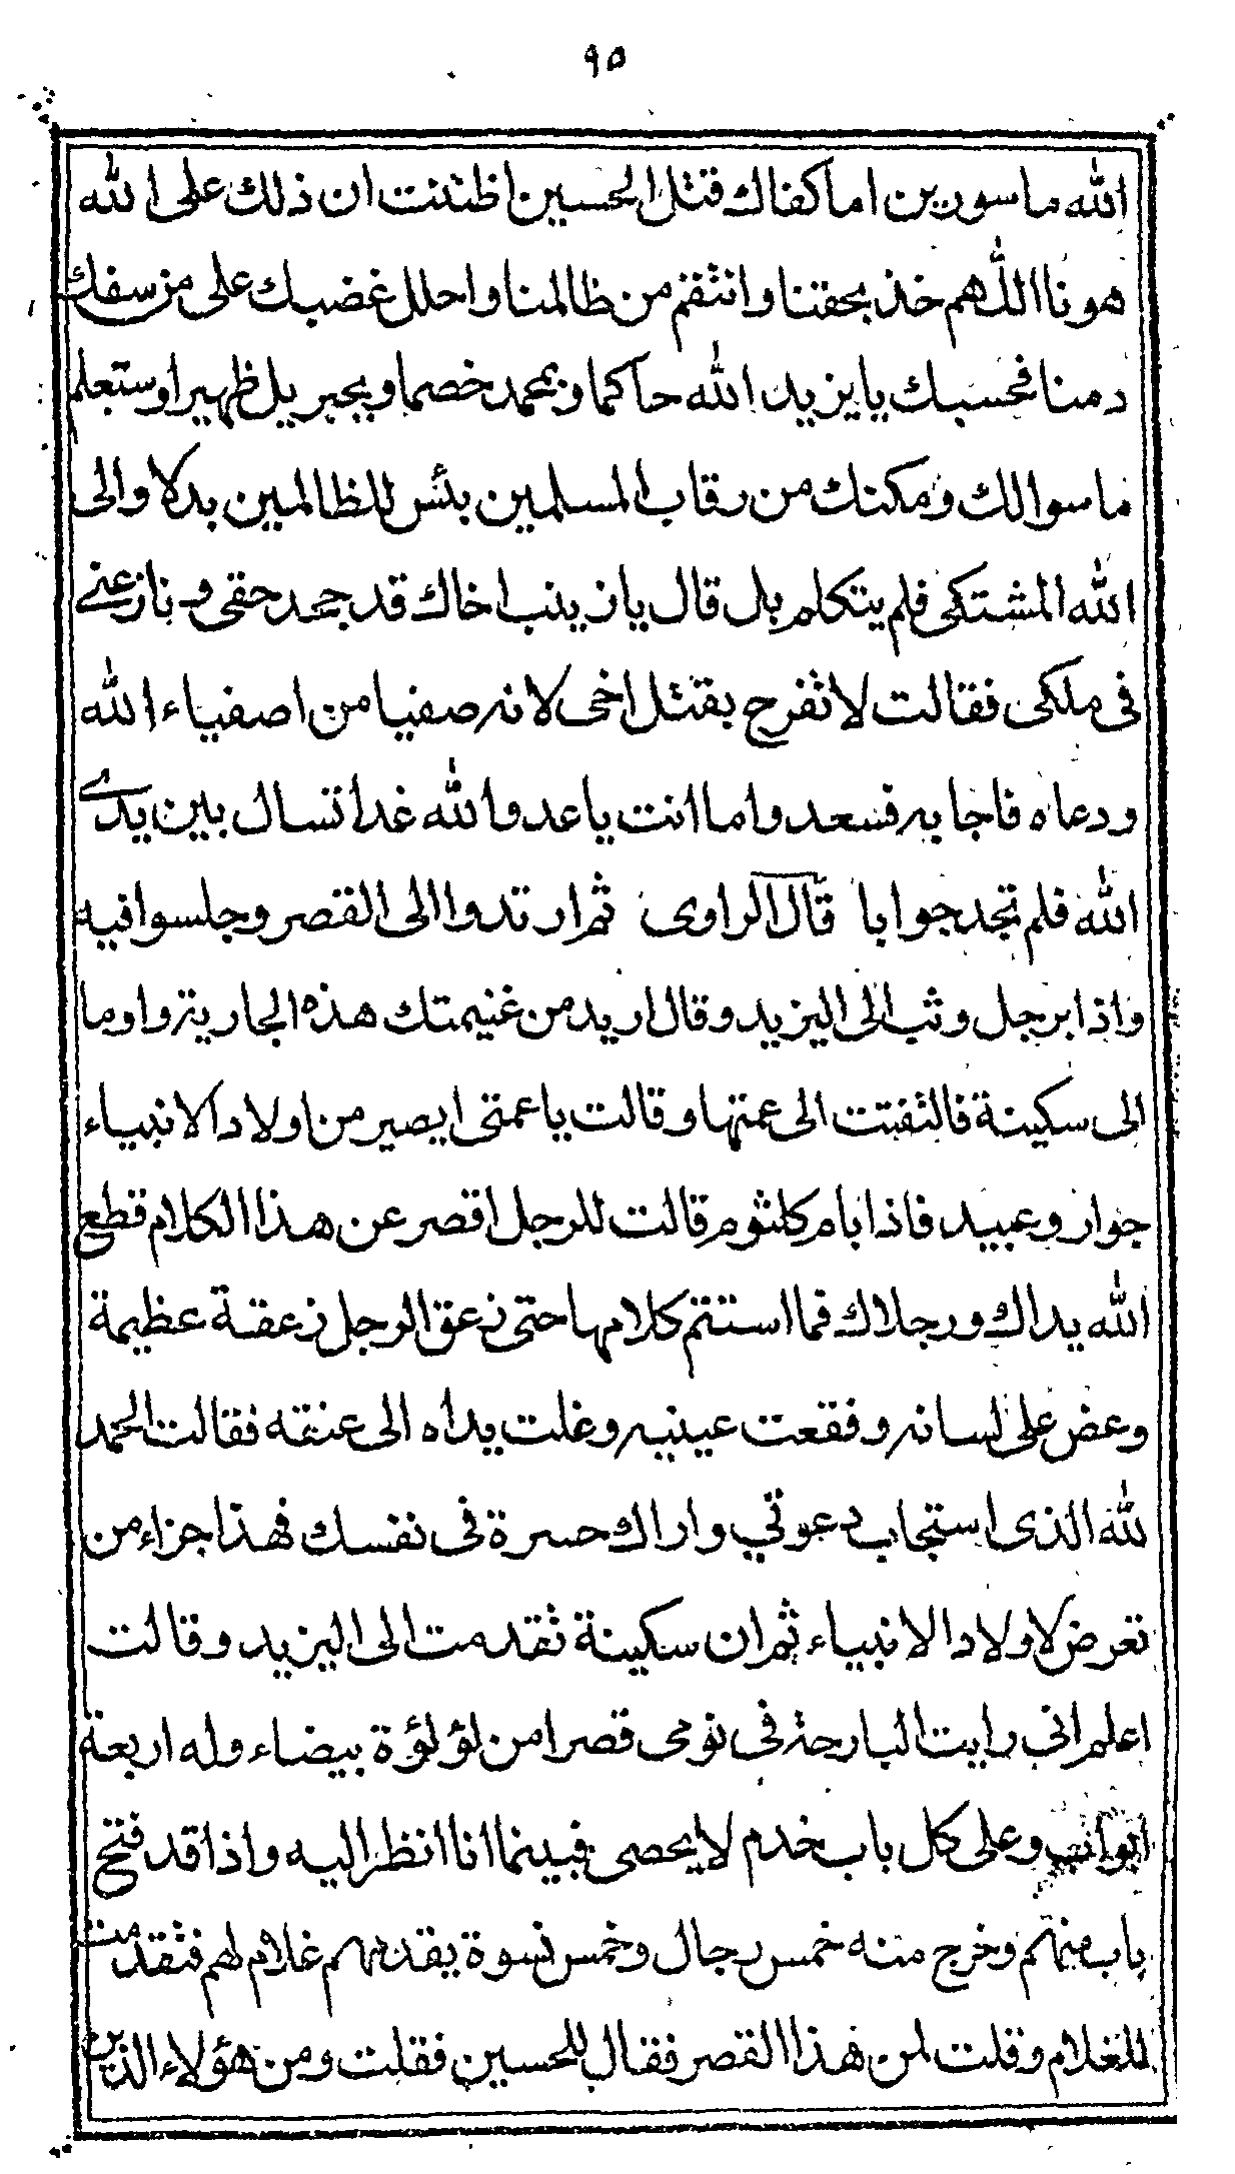 ٩٥
الله ما سورين اما كفاك قتل الحسين اظننت ان ذلك على الله
هونا اللهم خذ بحقنا وانتقم من ظالمنا واحلل غضبك على من سفك
دمنا فحسبك يا يزيد الله حاكما وبمحمد خصما وبجبريل ظهيرا وستعلم
ما سوا لك ومكنك من رقاب المسلمين بئس للظالمين بدلا والى
الله المشتكى فلم يتكلم بل قال يا زينب اخاك قد جحد حقى و نازعنے
فى ملكى فقالت لا تفرح بقتل اخى لانه صفيا من اصفياء الله
ودعاه فاجابه فسعد واما انت يا عدو الله غدا تسال بين يدے
الله فلم تجد جوابا قال الراوى ثم ارتدوا الى القصر وجلسوا فيه
واذا برجل وثب الى اليزيد وقال اريد من غنيمتك هذه الجارية واوما
الى سكينة فالتفتت الى عمتها وقالت يا عمتى ايصير من اولاد الانبياء
جوار وعبيد فاذا بام كلثوم قالت للرجل اقصر عن هذا الكلام قطع
الله يداك ورجلاك فما استتم كلامها حتى زعق الرجل زعقة عظيمة
وعض على لسانه وفقعت عينيه وغلت يداه الى عنقه فقالت الحمد
لله الذى استجاب دعوتي واراك حسرة فى نفسك فهذا جزاء من
تعرض لاولاد الانبياء ثم ان سكينة تقدمت الى اليزيد وقالت
اعلم انى رايت البارحة فى نومى قصرا من لؤلؤة بيضاء وله اربعة
ابواب وعلى كل باب خدم لا يحصى فبينما انا انظر اليه واذا قد فتح
باب منهم وخرج منه خمس رجال وخمس نسوة يقدمهم غلام لهم فتقدمت
للغلام وقلت لمن هذا القصر فقال للحسين فقلت ومن هؤلاء الذين